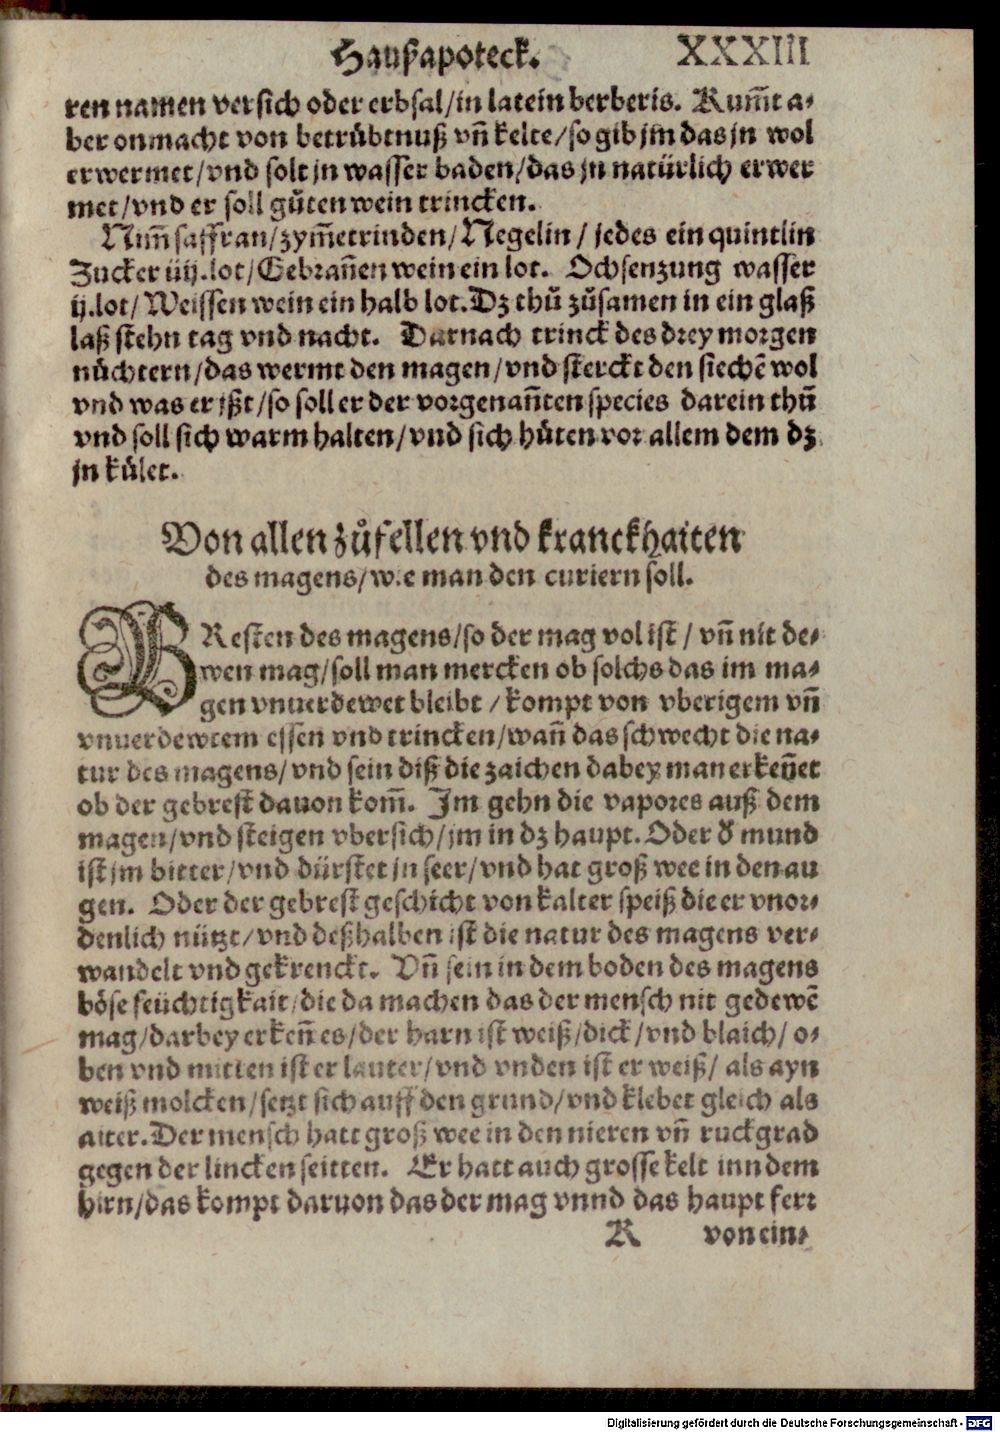 Haußapoteck. XXXIII
ren namen versich oder erbsal/in latein berberis. Kum̃t a⸗
ber onmacht von betrůbtnuß vñ kelte/so gib jm das jn wol
erwermet/vnd solt jn wasser baden/das jn natürlich erwer
met/vnd er soll gůten wein trincken.
Nim̃ saffran/zym̃etrinden/Negelin/ jedes ein quintlin
Zucker iiij.lot/Gebrañen wein ein lot. Ochsenzung wasser
ij.lot/Weissen wein ein halb lot. Dz thů zůsamen in ein glaß
laß stehn tag vnd nacht. Darnach trinck des drey morgen
nůchtern/das wermt den magen/vnd sterckt den siechē wol
vnd was er ißt/so soll er der vorgenañten species darein thů
vnd soll sich warm halten/vnd sich hůten vor allem dem dz
jn kůlet.
Von allen zůfellen vnd kranckhaiten
des magens/wie man den curiern soll.
BResten des magens/so der mag vol ist/ vñ nit de⸗
wen mag/soll man mercken ob solchs das im ma⸗
gen vnuerdewet bleibt/kompt von vberigem vñ
vnuerdewtem essen vnd trincken/wañ das schwecht die na⸗
tur des magens/vnd sein diß die zaichen dabey man erkeñet
ob der gebrest dauon kom̃. Im gehn die vapores auß dem
magen/vnd steigen vbersich/jm in dz haupt. Oder ď mund
ist jm bitter/vnd dürstet jn seer/vnd hat groß wee in den au
gen. Oder der gebrest geschicht von kalter speiß die er vnor⸗
denlich nützt/vnd deßhalben ist die natur des magens ver⸗
wandelt vnd gekrenckt. Vñ sein in dem boden des magens
böse feüchtigkait/die da machen das der mensch nit gedewē
mag/darbey erkeñ es/der harn ist weiß/dick/vnd blaich/ o⸗
ben vnd mitten ist er lauter/vnd vnden ist er weiß/ als ayn
weiß molcken/setzt sich auff den grund/vnd klebet gleich als
aiter. Der mensch hatt groß wee in den nieren vñ ruckgrad
gegen der lincken seitten. Er hatt auch grosse kelt inn dem
hirn/das kompt daruon das der mag vnnd das haupt fert
K von ein⸗
Digitalisierung gefördert durch die Deutsche Forschungsgemeinschaft - DFG